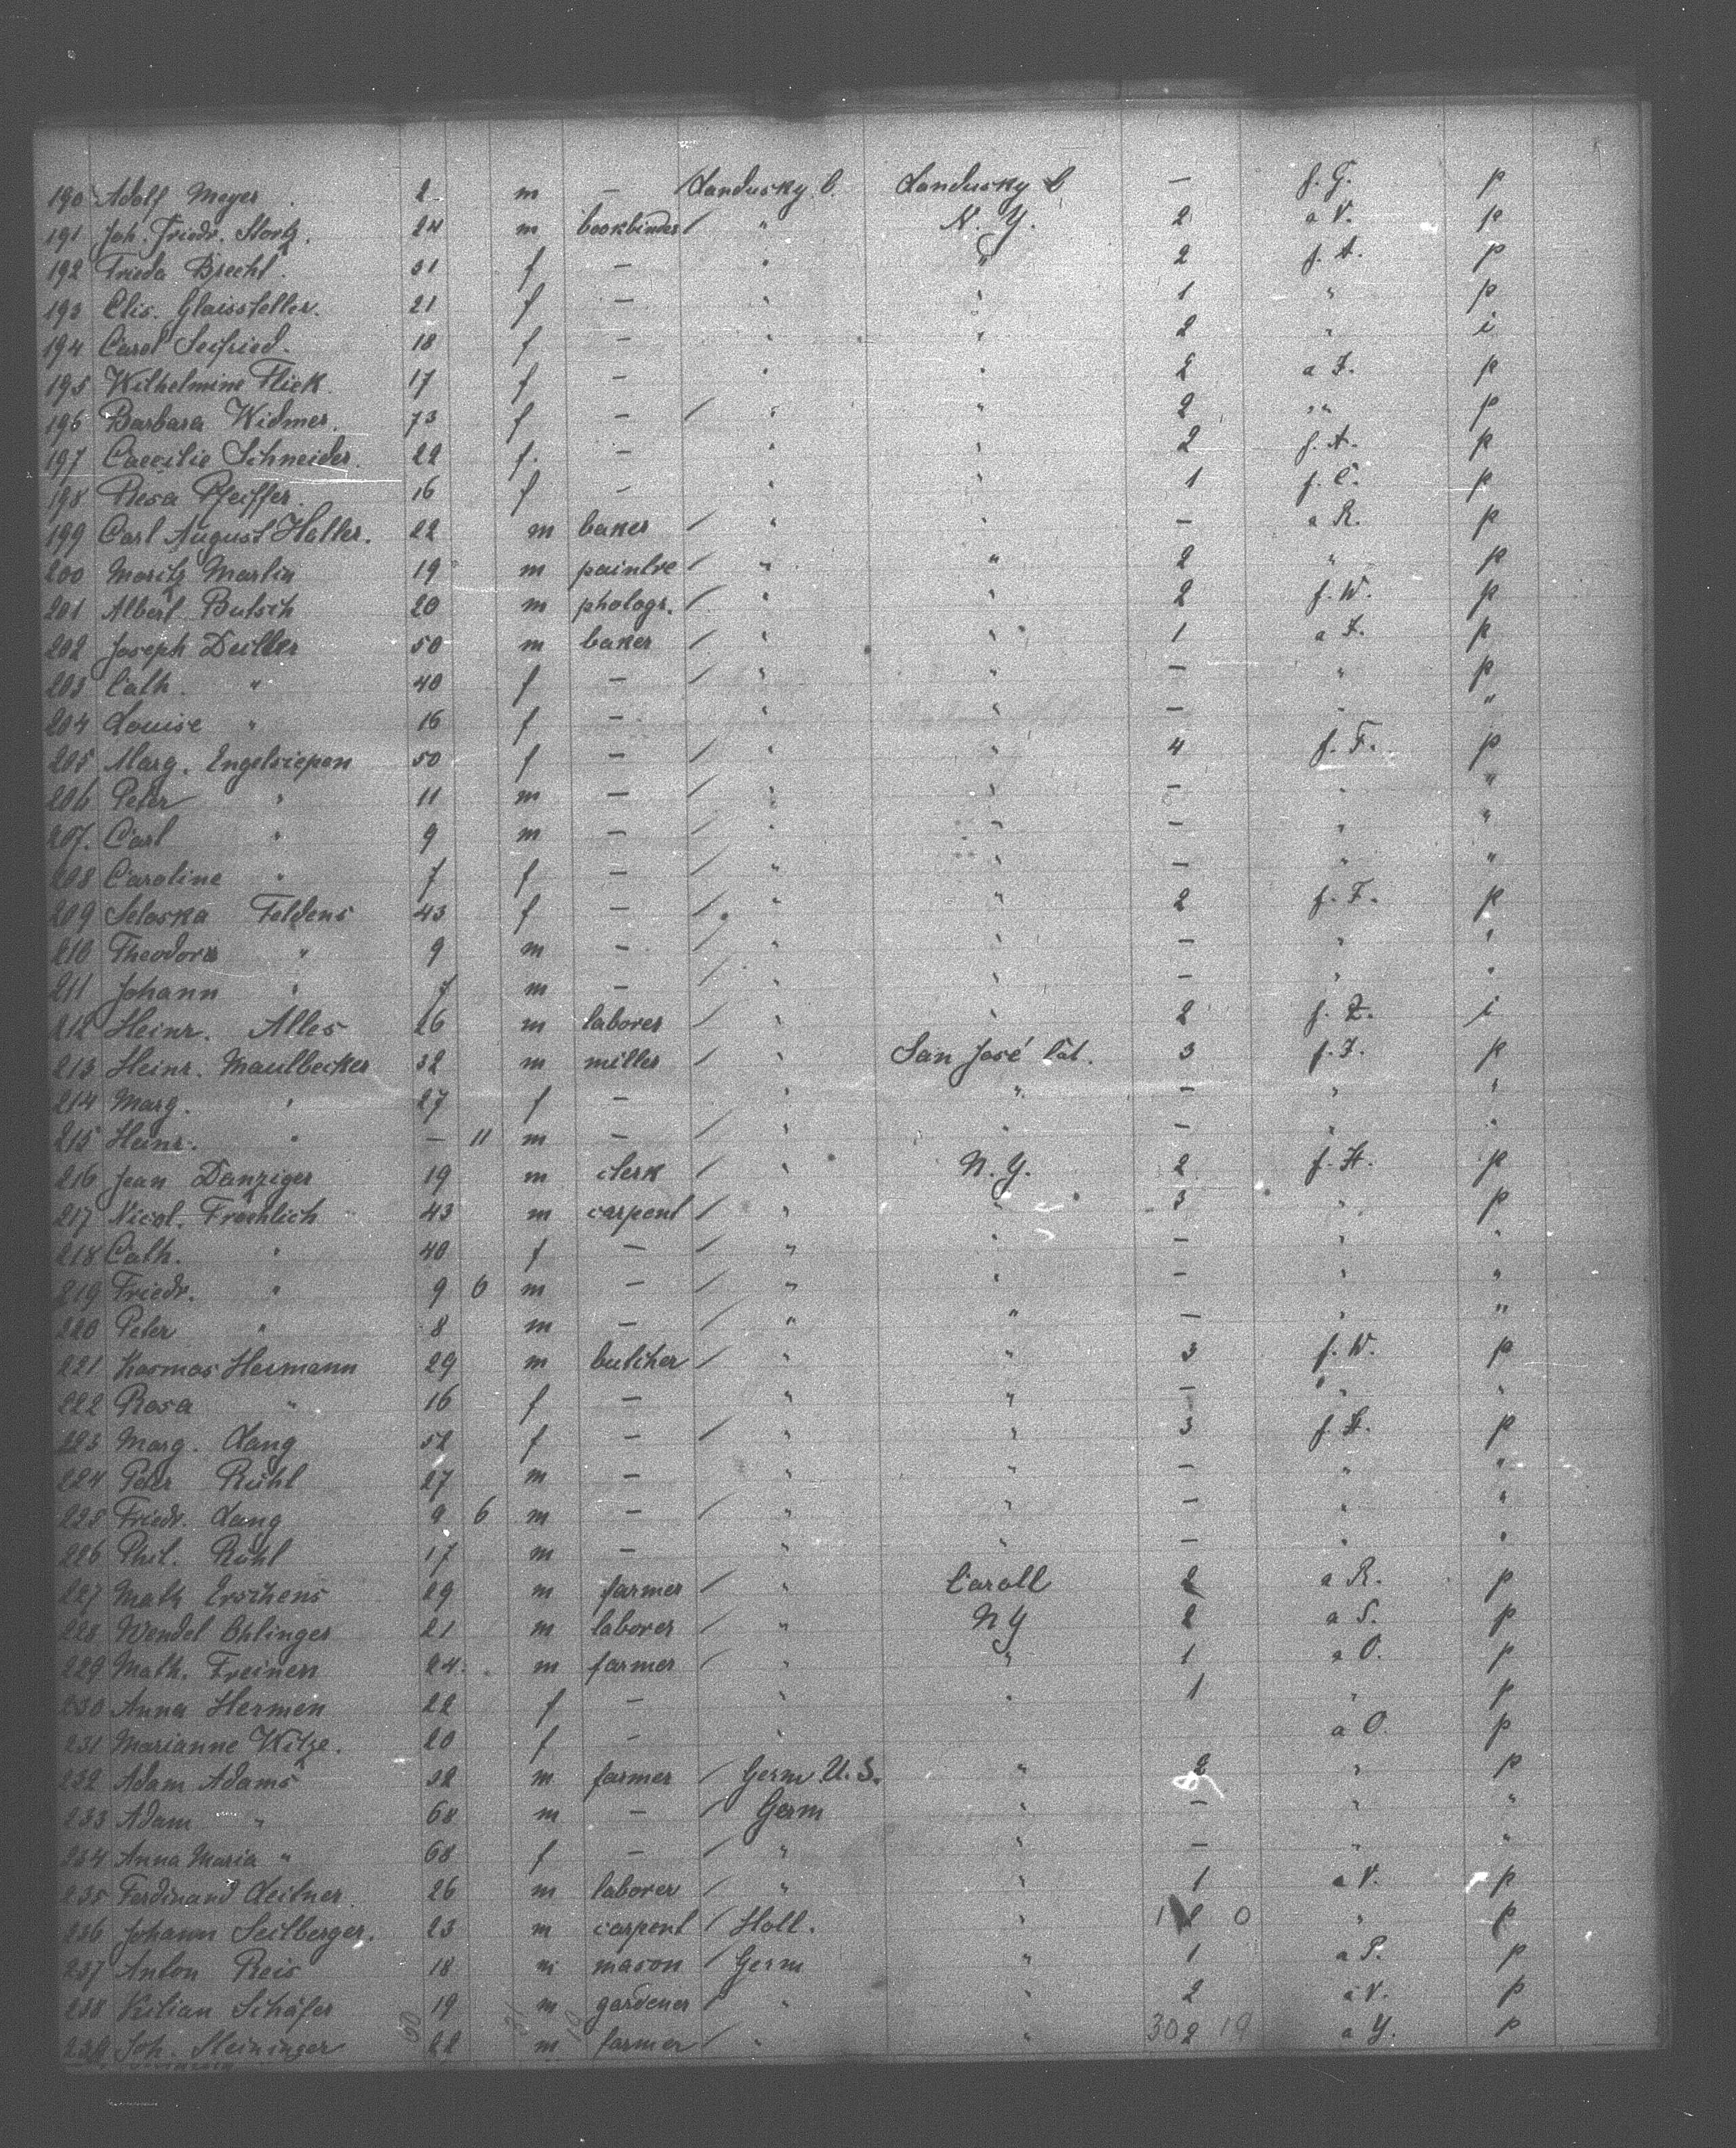 190 Adolf Meyer 2 m — Sandusky O. Sandusky O — f. G. p
191 Joh. Friedr. Stortz. 24 m bookbinder / " N. Y. 2 a V. p
192 Frieda Brecht. 31 f — " " 2 f. A. p
193 Elis. Glaissteller. 21 f — " " 1 " p
194 Carol Seifried. 18 f — " " 2 " i
195 Wilhelmine Flick. 17 f — " " 2 a F. p
196 Barbara Widmer. 73 f — / " " 2 " p
197 Caecilie Schneider. 22 f. — " " 2 f. A. p
198 Rosa Pfeiffer. 16 f — " " 1 f. C. p
199 Carl August Haller. 22 m baker / " " — a R. p
200 Moritz Martin 19 m paintre / " " 2 " p
201 Albert Butsch 20 m photogr. / " " 2 f. W. p
202 Joseph Deitler 50 m baker / " " 1 a F. p
203 Cath. " 40 f — / " " — " p
204 Louise " 16 f — " " — " "
205 Marg. Engelsiepen 50 f — / " " 4 f. F. p
206 Peter " 11 m — / " " — " "
207. Carl " 9 m — / " " — " "
208 Caroline " 7 f — / " " — " "
209 Feldens 43 f — / " " 2 f. F. p
210 Theodora " 9 m — / " " — " "
211 Johann " 7 m — / " " — " "
212 Heinr. Alles 26 m laborer / " " 2 f. Z. i
213 Heinr. Maulbecker 32 m miller / " San José Cal. 3 f. F. p
214 Marg. " 27 f — / " " — " "
215 Heinr. " — 11 m — / " " — " "
216 Jean Danziger 19 m clerk / " N. Y. 2 f. H. p
217 Nicol. Froehlich 43 m carpent / " " 3 " p
218 Cath. " 40 f — / " " — " "
219 Friedr. " 9 6 m — / " " — " "
220 Peter " 8 m — / " " — " "
221 Kosmas Hermann 29 m butcher / " " 3 f. W. p
222 Rosa " 16 f — " " — " "
223 Marg. Lang 52 f — / " " 3 f. H. p
224 Peter Rühl 27 m — " " — " "
225 Friedr. Lang 9 6 m — / " " — " "
226 Phil. Rühl 17 m — " " — " "
227 Math Erschens 29 m farmer / " Caroll 2 a R. p
228 Wendel Ehlinger 21 m laborer / " N Y 2 a S. p
229 Math. Freinen 24. m farmer / " " 1 a O. p
230 Anna Hermen 22 f — " " 1 " p
231 Marianne Witze. 20 f — " a O. p
232 Adam Adams 32 m farmer / Germ U. S. " 2 " p
233 Adam " 68 m — / Germ " — " "
234 Anna Maria " 68 f — / " " — " "
235 Ferdinand Leitner 26 m laborer / " " 1 a V. p
236 Johann Seilberger. 23 m carpent / Holl. " 1 0 " p
237 Anton Reis 18 m mason / Germ " 1 a P. p
238 Kilian Schäfer 19 m gardener / " " 2 a V. p
239 Joh. Heininger 22 m farmer / " " 30 2 19 a Y. p